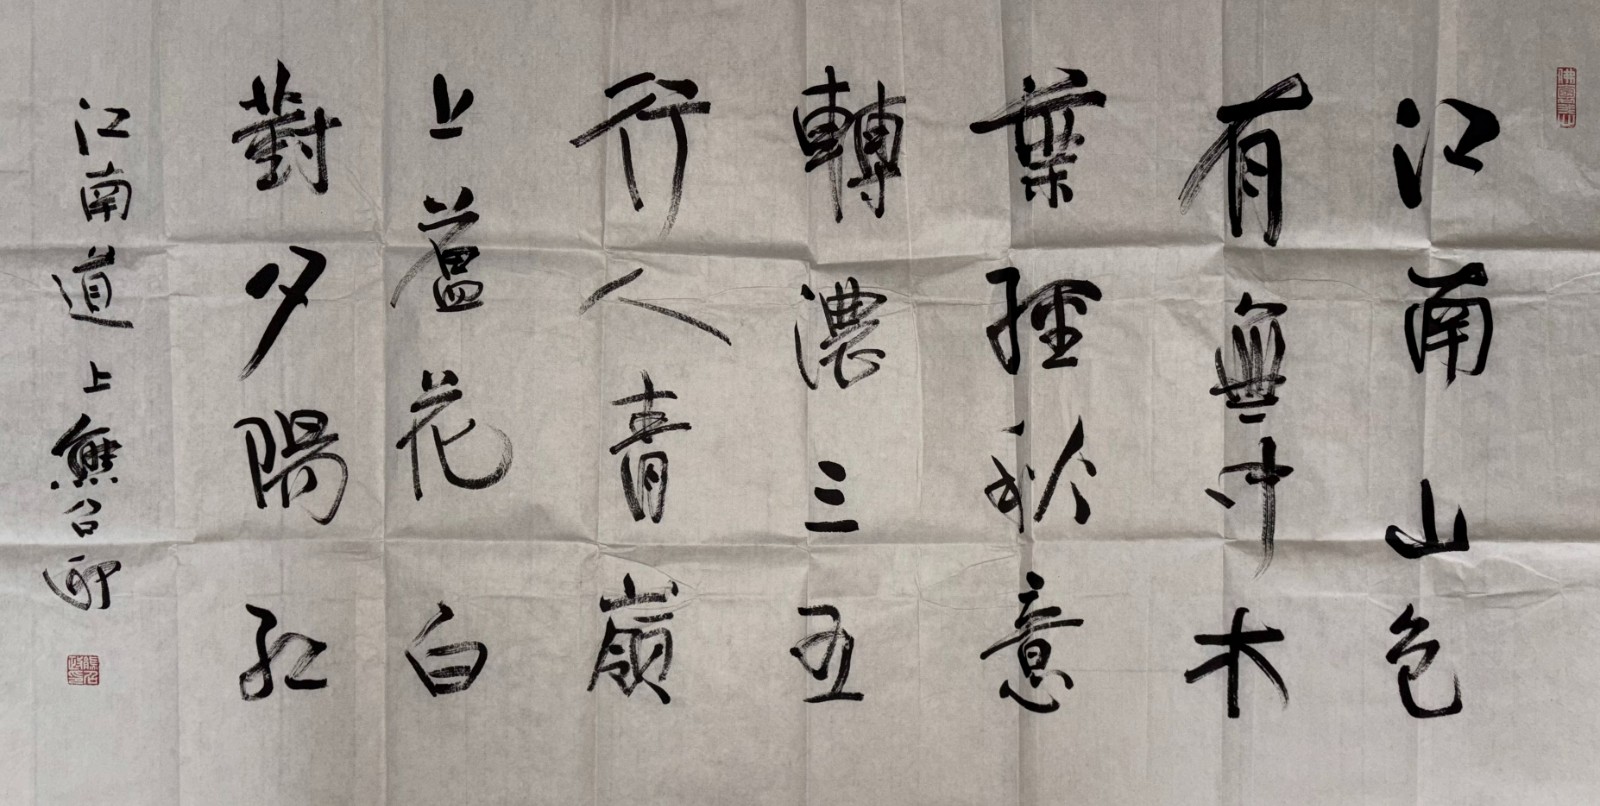 江南山色
有無中木
葉經秋意
轉濃三五
行人青嶺
上蘆花白
對夕陽紅
江南道上熊召政